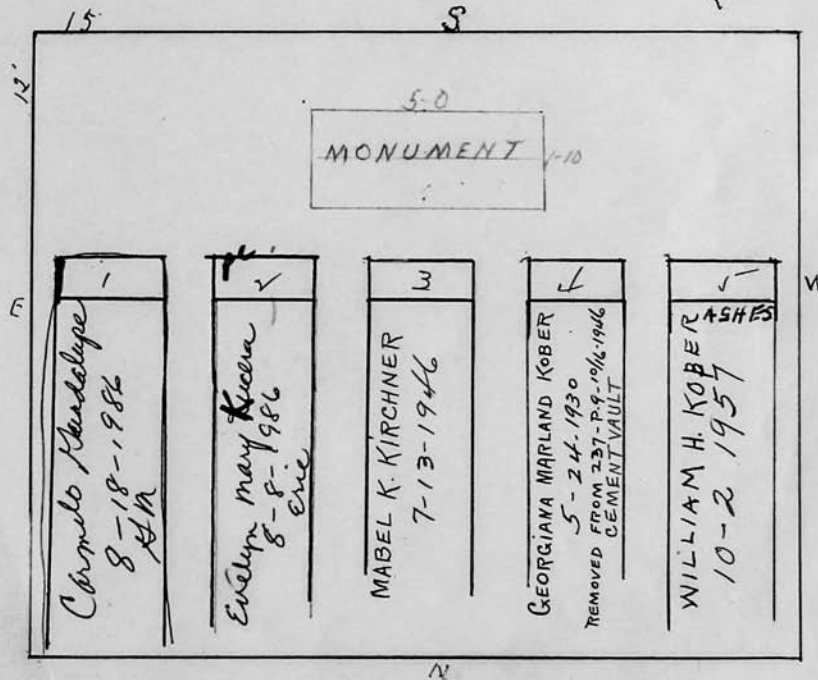 15
S
12'
5-0
MONUMENT
1-10
E
W
1
Carmelo Guadalupe
8-18-1986
2
Evelyn Mary Kucera
8-8-1986
Erie
3
MABEL K. KIRCHNER
7-13-1946
4
GEORGIANA MARLAND KOBER
5-24-1930
REMOVED FROM 237-P.9-10/16-1946
CEMENT VAULT
5
ASHES
WILLIAM H. KOBER
10-2 1957
N